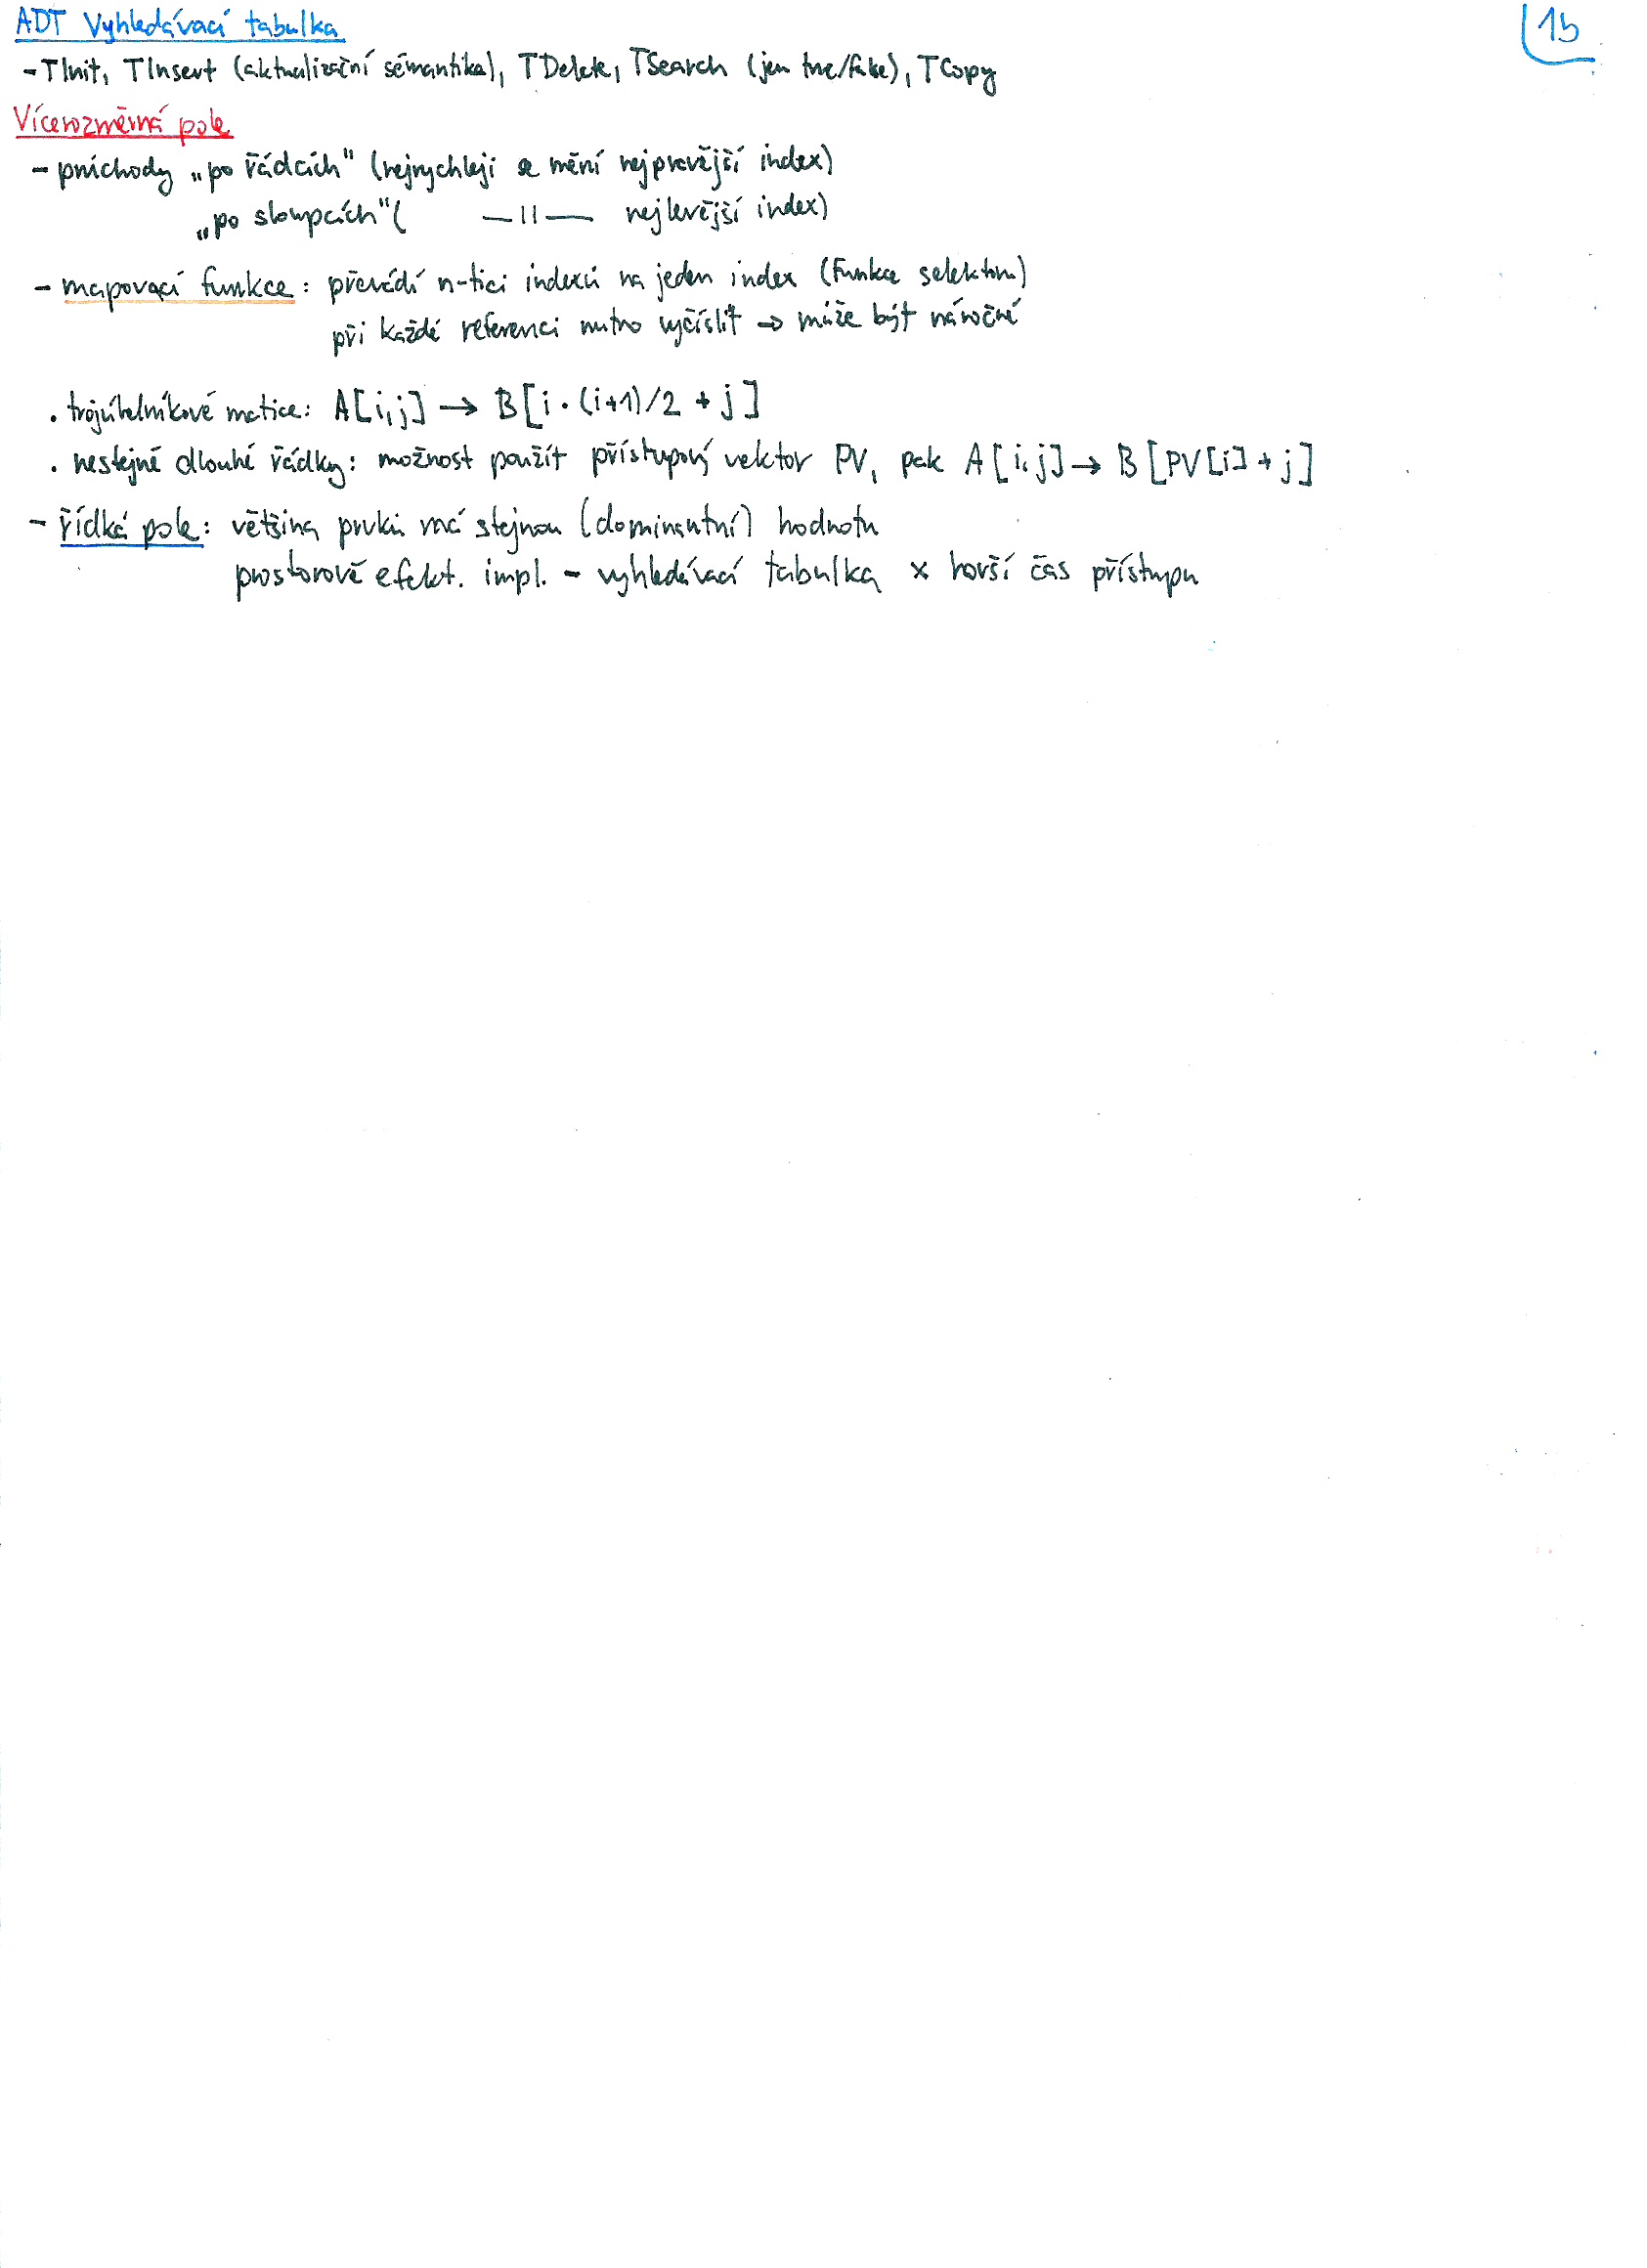 ADT Vyhledávací tabulka
15
- TInit, TInsert (aktualizační sémantika), TDelete, TSearch (jen true/false), TCopy
Vícerozměrná pole
- průchody „po řádcích" (nejrychleji se mění nejpravější index)
„po sloupcích" ( —||— nejlevější index)
- mapovací funkce: převádí n-tici indexů na jeden index (funkce selektoru)
při každé referenci nutno vyčíslit → může být náročné
. trojúhelníkové matice: A[i,j] → B[i·(i+1)/2 + j]
. nestejně dlouhé řádky: možnost použít přístupový vektor PV, pak A[i,j] → B[PV[i] + j]
- řídká pole: většina prvků má stejnou (dominantní) hodnotu
prostorově efekt. impl. - vyhledávací tabulka × horší čas přístupu